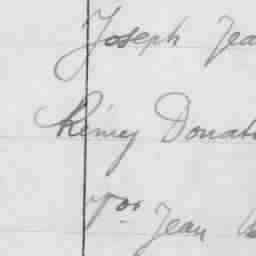 Joseph Jea
Rémy Donat
Jean